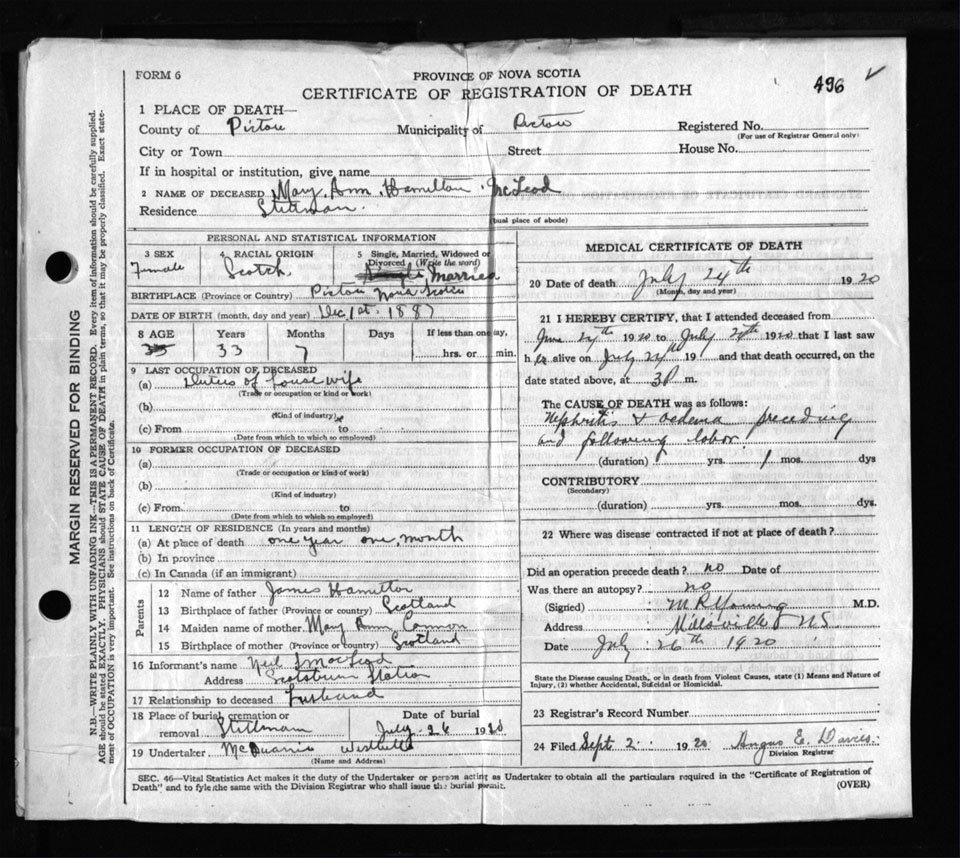 FORM 6
PROVINCE OF NOVA SCOTIA
CERTIFICATE OF REGISTRATION OF DEATH
496 ✓
1 PLACE OF DEATH—
County of Pictou Municipality of Pictou Registered No.
(For use of Registrar General only)
City or Town Street House No.
If in hospital or institution, give name
2 NAME OF DECEASED Mary Ann Hamilton McLeod
Residence Stillman
(usual place of abode)
PERSONAL AND STATISTICAL INFORMATION
3 SEX 4 RACIAL ORIGIN 5 Single, Married, Widowed or
Divorced (Write the word)
Female Scotch Single Married
BIRTHPLACE (Province or Country) Pictou Nova Scotia
DATE OF BIRTH (month, day and year) Dec 1st 1887
8 AGE Years Months Days If less than one day,
35 33 7 hrs. or min.
9 LAST OCCUPATION OF DECEASED
(a) Duties of house wife
(Trade or occupation or kind or work)
(b)
(Kind of industry)
(c) From to
(Date from which to which so employed)
10 FORMER OCCUPATION OF DECEASED
(a)
(Trade or occupation or kind of work)
(b)
(Kind of industry)
(c) From to
(Date from which to which so employed)
11 LENGTH OF RESIDENCE (In years and months)
(a) At place of death one year one month
(b) In province
(c) In Canada (if an immigrant)
Parents
12 Name of father James Hamilton
13 Birthplace of father (Province or country) Scotland
14 Maiden name of mother Mary Ann Connon
15 Birthplace of mother (Province or country) Scotland
16 Informant's name Neil MacLeod
Address Scotsburn Station
17 Relationship to deceased husband
18 Place of burial, cremation or Date of burial
removal Stillman July 26 1920
19 Undertaker McQuarrie Westville
(Name and Address)
MEDICAL CERTIFICATE OF DEATH
20 Date of death July 24th 1920
(Month, day and year)
21 I HEREBY CERTIFY, that I attended deceased from
June 24th 1920 to July 24th 1920 that I last saw
h er alive on July 24th 19 and that death occurred, on the
date stated above, at 3 P m.
The CAUSE OF DEATH was as follows:
Nephritis & oedema preceding
and following labor
(duration) yrs. 1 mos. dys
CONTRIBUTORY
(Secondary)
(duration) yrs. mos. dys.
22 Where was disease contracted if not at place of death?
Did an operation precede death? no Date of
Was there an autopsy? no
(Signed) M R Young M.D.
Address Millsville NS
Date July 26th 1920
State the Disease causing Death, or in death from Violent Causes, state (1) Means and Nature of
Injury, (2) whether Accidental, Suicidal or Homicidal.
23 Registrar's Record Number
24 Filed Sept. 2 1920 Angus E. Davis
Division Registrar
SEC. 46—Vital Statistics Act makes it the duty of the Undertaker or person acting as Undertaker to obtain all the particulars required in the "Certificate of Registration of
Death" and to fyle the same with the Division Registrar who shall issue the burial permit.
(OVER)
MARGIN RESERVED FOR BINDING
N.B.—WRITE PLAINLY WITH UNFADING INK—THIS IS A PERMANENT RECORD. Every item of information should be carefully supplied.
AGE should be stated EXACTLY. PHYSICIANS should STATE CAUSE OF DEATH in plain terms, so that it may be properly classified. Exact state-
ment of OCCUPATION is very important. See instructions on back of Certificate.